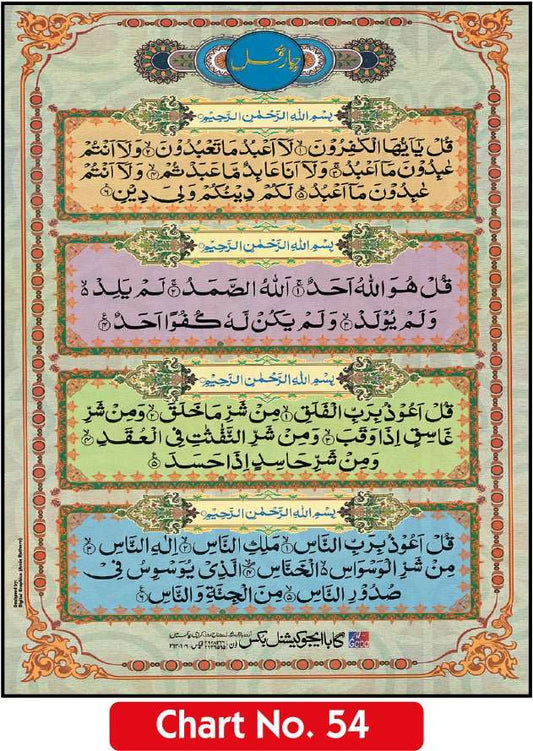 چہار قل
بِسْمِ اللهِ الرَّحْمٰنِ الرَّحِيْمِ
قُلْ يٰۤاَيُّهَا الْكٰفِرُوْنَ ۙ﴿۱﴾ لَاۤ اَعْبُدُ مَا تَعْبُدُوْنَ ۙ﴿۲﴾ وَلَاۤ اَنْتُمْ
عٰبِدُوْنَ مَاۤ اَعْبُدُ ۚ﴿۳﴾ وَلَاۤ اَنَا عَابِدٌ مَّا عَبَدْتُّمْ ۙ﴿۴﴾ وَلَاۤ اَنْتُمْ
عٰبِدُوْنَ مَاۤ اَعْبُدُ ؕ﴿۵﴾ لَكُمْ دِيْنُكُمْ وَلِيَ دِيْنِ ﴿۶﴾
بِسْمِ اللهِ الرَّحْمٰنِ الرَّحِيْمِ
قُلْ هُوَ اللهُ اَحَدٌ ۚ﴿۱﴾ اَللهُ الصَّمَدُ ۚ﴿۲﴾ لَمْ يَلِدْ ۙ۬
وَلَمْ يُوْلَدْ ۙ﴿۳﴾ وَلَمْ يَكُنْ لَّهٗ كُفُوًا اَحَدٌ ﴿۴﴾
بِسْمِ اللهِ الرَّحْمٰنِ الرَّحِيْمِ
قُلْ اَعُوْذُ بِرَبِّ الْفَلَقِ ۙ﴿۱﴾ مِنْ شَرِّ مَا خَلَقَ ۙ﴿۲﴾ وَمِنْ شَرِّ
غَاسِقٍ اِذَا وَقَبَ ۙ﴿۳﴾ وَمِنْ شَرِّ النَّفّٰثٰتِ فِي الْعُقَدِ ۙ﴿۴﴾
وَمِنْ شَرِّ حَاسِدٍ اِذَا حَسَدَ ﴿۵﴾
بِسْمِ اللهِ الرَّحْمٰنِ الرَّحِيْمِ
قُلْ اَعُوْذُ بِرَبِّ النَّاسِ ۙ﴿۱﴾ مَلِكِ النَّاسِ ۙ﴿۲﴾ اِلٰهِ النَّاسِ ۙ﴿۳﴾
مِنْ شَرِّ الْوَسْوَاسِ ۙ۬ الْخَنَّاسِ ۪ۙ﴿۴﴾ الَّذِيْ يُوَسْوِسُ فِيْ
صُدُوْرِ النَّاسِ ۙ﴿۵﴾ مِنَ الْجِنَّةِ وَالنَّاسِ ﴿۶﴾
گابا ایجوکیشنل بکس
Designed by:
Digital Graphics
Chart No. 54